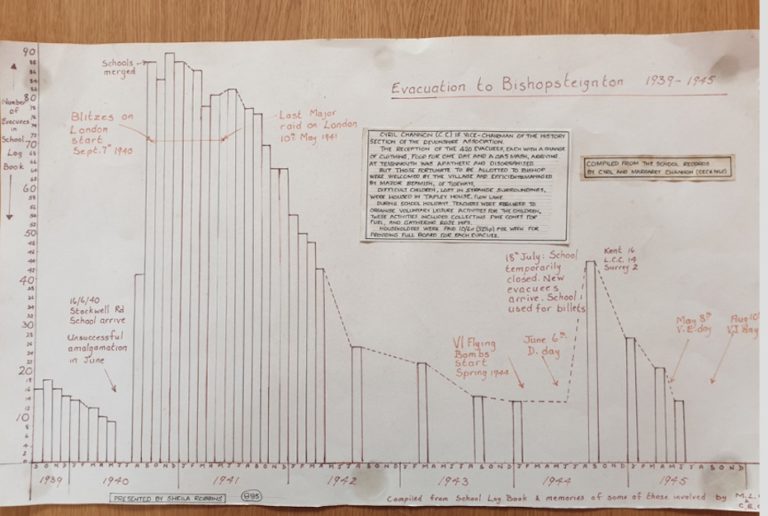 Evacuation to Bishopsteignton 1939-1945
Number
of
Evacuees
in
School
Log
Book
90
80
70
60
50
40
30
20
10
Schools
merged
Blitzes on
London
start
Sept. 7th 1940
Last Major
raid on London
10th May 1941
CYRIL CHANNON (C.C) IS VICE-CHAIRMAN OF THE HISTORY
SECTION OF THE DEVONSHIRE ASSOCIATION.
THE RECEPTION OF THE 450 EVACUEES, EACH WITH A CHANGE
OF CLOTHING, FOOD FOR ONE DAY AND A GAS MASK, ARRIVING
AT TEIGNMOUTH WAS APATHETIC AND DISORGANISED.
BUT THOSE FORTUNATE TO BE ALLOTTED TO BISHOP
WERE WELCOMED BY THE VILLAGE AND EFFICIENTLY MANAGED
BY MAJOR BEAMISH, OF
DIFFICULT CHILDREN, LOST IN STRANGE SURROUNDINGS,
WERE HOUSED IN TAPLEY HOUSE, FLOW LANE.
DURING SCHOOL HOLIDAY, TEACHERS WERE REQUIRED TO
ORGANISE VOLUNTARY LEISURE ACTIVITIES FOR THE CHILDREN,
THESE ACTIVITIES INCLUDED COLLECTING PINE CONES FOR
FUEL, AND GATHERING ROSE HIPS.
HOUSEHOLDERS WERE PAID 10/6d (52½p) PER WEEK FOR
PROVIDING FULL BOARD FOR EACH EVACUEE.
COMPILED FROM THE SCHOOL RECORDS
BY CYRIL AND MARGARET CHANNON
18th July: School
temporarily
closed. New
evacuees
arrive. School
used for billets
Kent 16
L.C.C. 14
Surrey 2
16/6/40
Stockwell Rd
School arrive
Unsuccessful
amalgamation
in June
V1 Flying
Bombs
Start
Spring 1944
June 6th
D. day
May 8th
V.E. day
Aug 10
VJ day
1939 1940 1941 1942 1943 1944 1945
PRESENTED BY SHEILA ROBBINS
Compiled from School Log Book & memories of some of those involved by M.L.
C.E.C